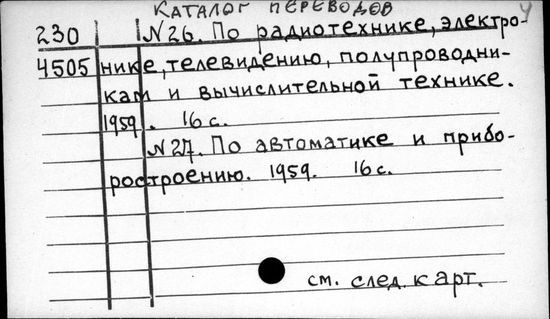 КАТАЛОГ ПЕРЕВОДОВ
230 N26. По радиотехнике, электро-
4505 нике, телевидению, полупроводни-
кам и вычислительной технике.
1959. 16 с.
N27. По автоматике и прибо-
ростроению. 1959. 16 с.
см. след. карт.